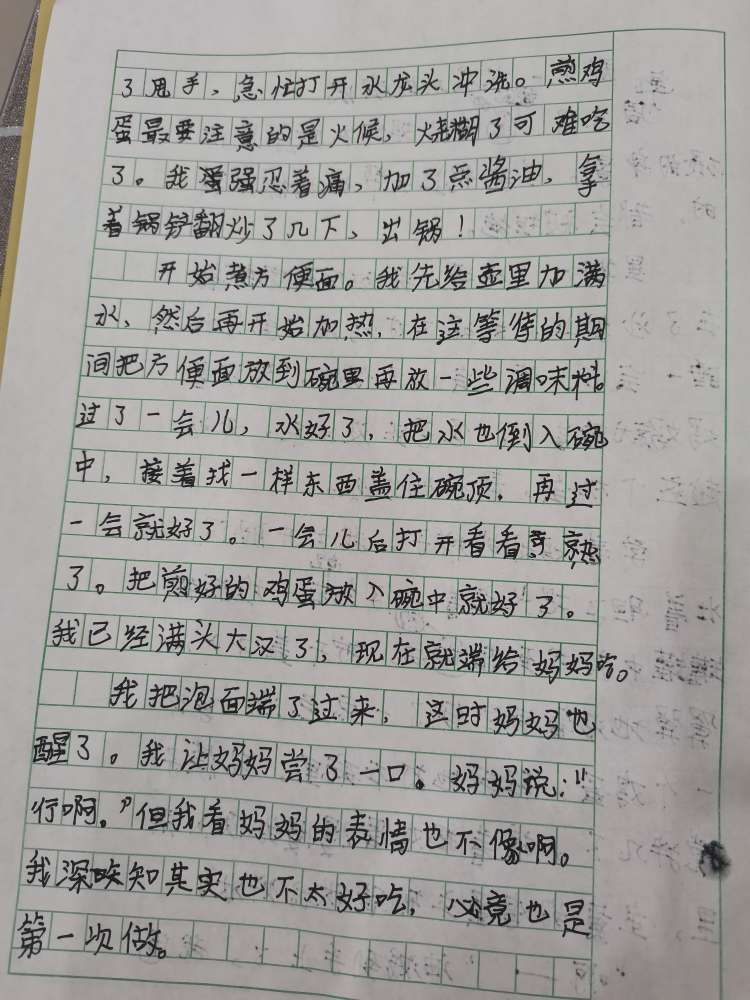 了甩手，急忙打开水龙头冲洗。煎鸡
蛋最要注意的是火候，烧糊了可难吃
了。我强忍着痛，加了点酱油，拿
着锅铲翻炒了几下，出锅！
开始煮方便面。我先给壶里加满
水，然后再开始加热，在这等待的期
间把方便面放到碗里再放一些调味料。
过了一会儿，水好了，把水也倒入碗
中，接着找一样东西盖住碗顶，再过
一会就好了。一会儿后打开看看熟
了。把煎好的鸡蛋放入碗中就好了。
我已经满头大汉了，现在就端给妈妈吃。
我把泡面端了过来，这时妈妈也
醒了。我让妈妈尝了一口。妈妈说：“
行啊。”但我看妈妈的表情也不像啊。
我深知其实也不太好吃，必竟也是
第一次做。